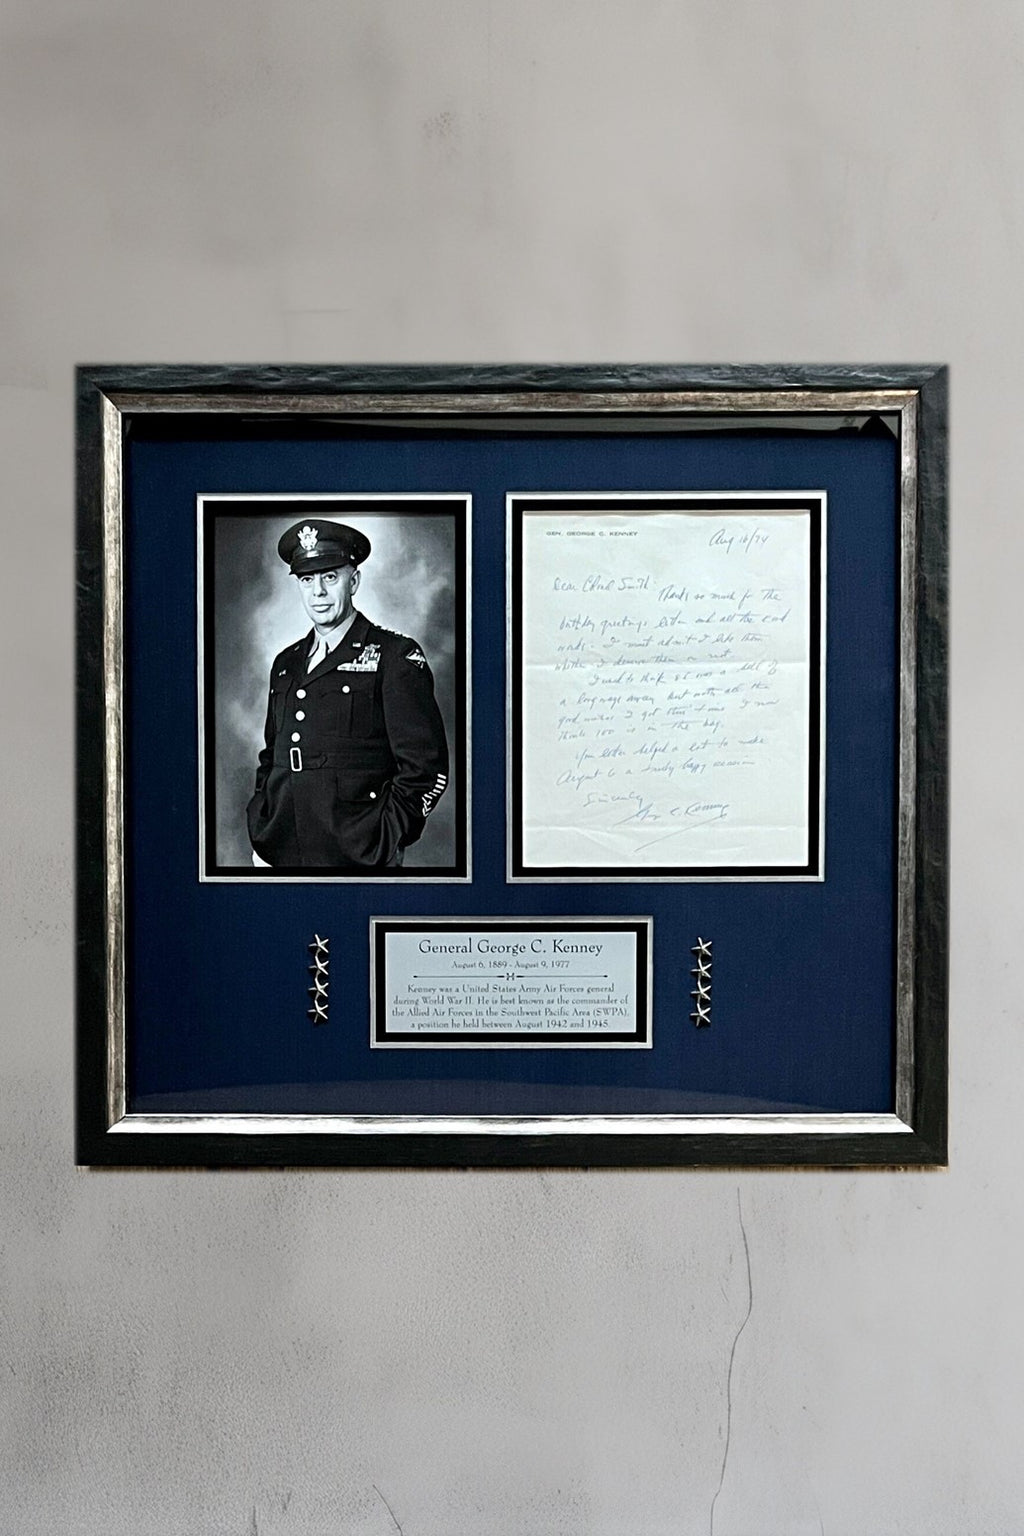 GEN. GEORGE C. KENNEY
Aug 16/74
Dear Smith:
Thanks so much for the
birthday greetings letter and all the kind
words. I must admit I like them
whether I deserve them or not.
I used to think 85 was a hell of
a long ways away but with all the
good wishes I got this time I now
think 100 is in the bag.
Your letter helped a lot to make
August 6 a truly happy occasion
Sincerely
George C. Kenney
General George C. Kenney
August 6, 1889 - August 9, 1977
Kenney was a United States Army Air Forces general
during World War II. He is best known as the commander of
the Allied Air Forces in the Southwest Pacific Area (SWPA),
a position he held between August 1942 and 1945.